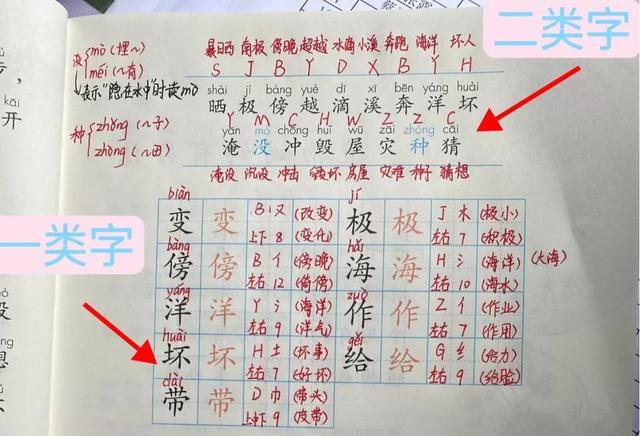 二类字
暴晒 南极 傍晚 超越 水滴 小溪 奔跑 海洋 坏人
没 mò (埋~)
méi (~有)
S J B Y D X B Y H
表示"隐在水中"时读mò
shài jí bàng yuè dī xī bēn yáng huài
晒 极 傍 越 滴 溪 奔 洋 坏
开
种 zhǒng (~子)
zhòng (~田)
Y M C H W Z Z C
yān mò chōng huǐ wū zāi zhǒng cāi
淹 没 冲 毁 屋 灾 种 猜
淹没 沉没 冲击 毁坏 房屋 灾难 种子 猜想
一类字
biàn
变 变 B 又 (改变)
上下 8 (变化)
jí
极 极 J 木 (极小)
左右 7 (积极)
bàng
傍 傍 B 亻 (傍晚)
左右 12 (倚傍)
hǎi
海 海 H 氵 (海洋) (大海)
左右 10 (海水)
yáng
洋 洋 Y 氵 (海洋)
左右 9 (洋气)
zuò
作 作 Z 亻 (作业)
左右 7 (作用)
huài
坏 坏 H 土 (坏事)
左右 7 (好坏)
gěi
给 给 G 纟 (给力)
左右 9 (给脸)
dài
带 带 D 巾 (带头)
上中下 9 (皮带)